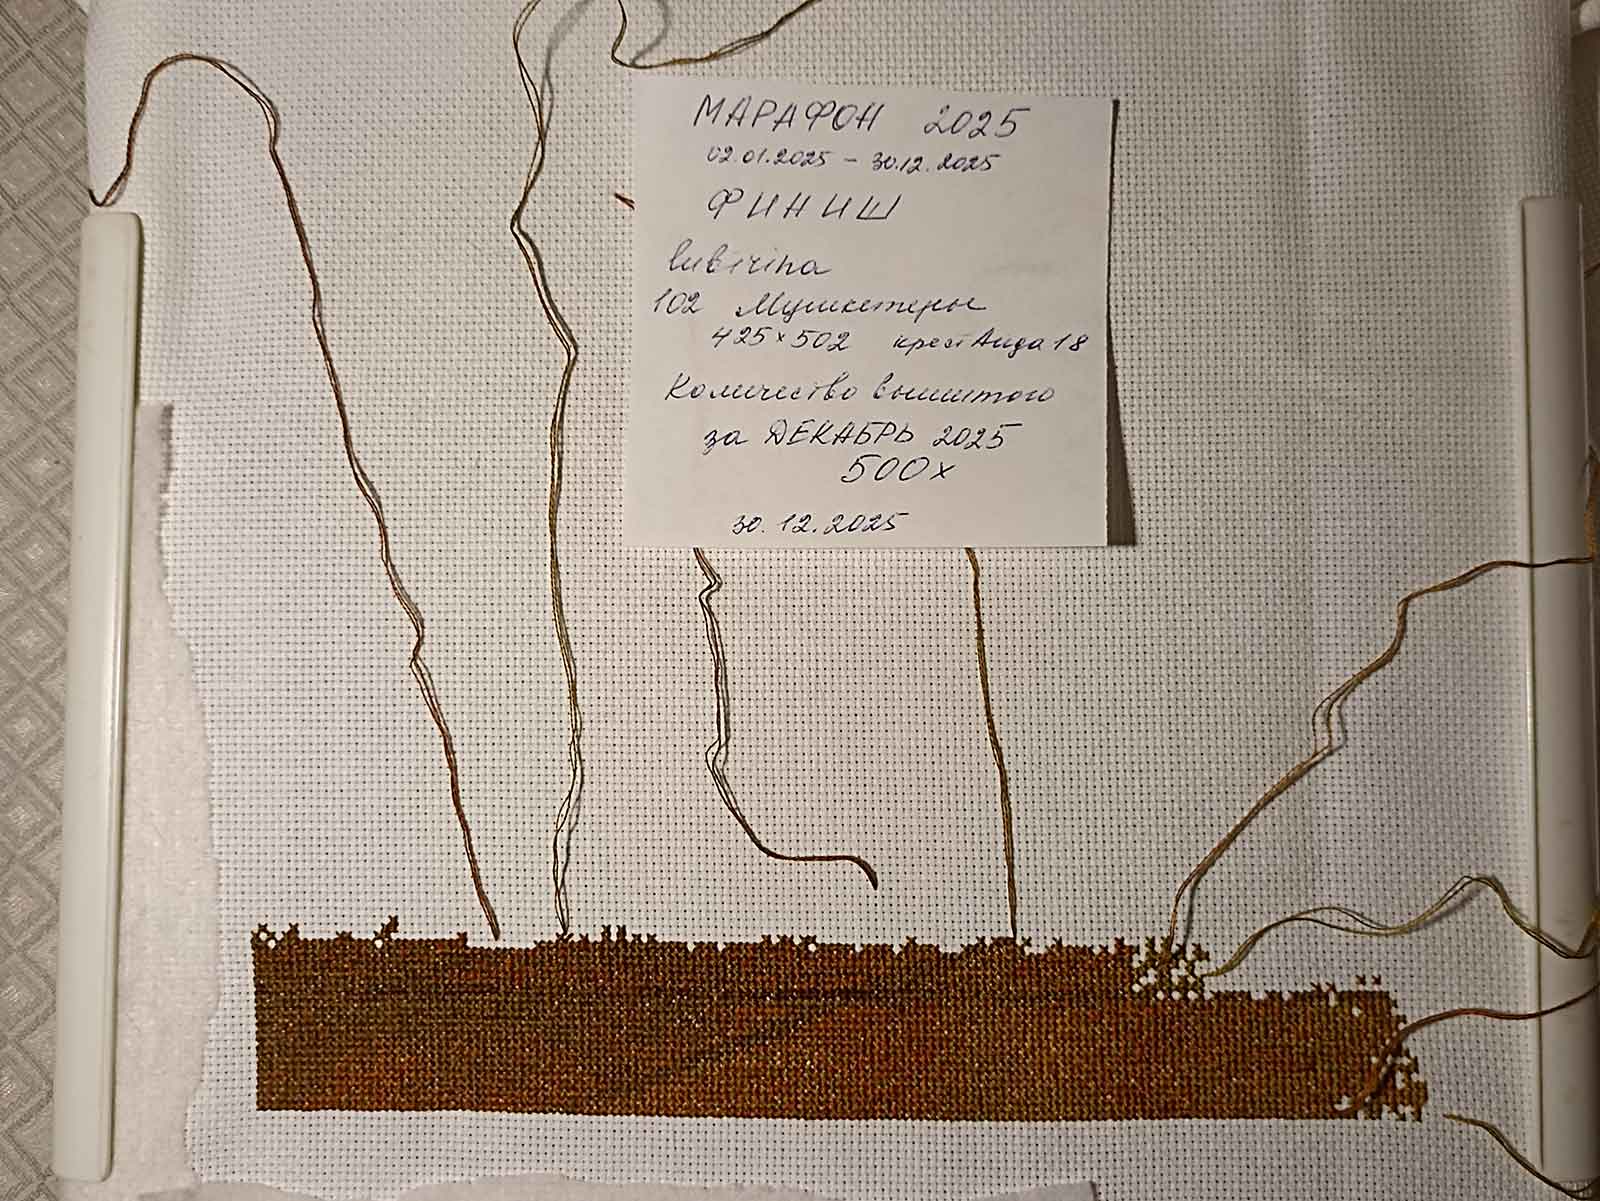 МАРАФОН 2025
02.01.2025 - 30.12.2025
ФИНИШ
102 Мушкетеры
425×502 крест Аида 18
Количество вышитого
за ДЕКАБРЬ 2025
500х
30.12.2025